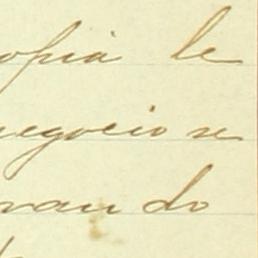 opia le
negocio se
rando